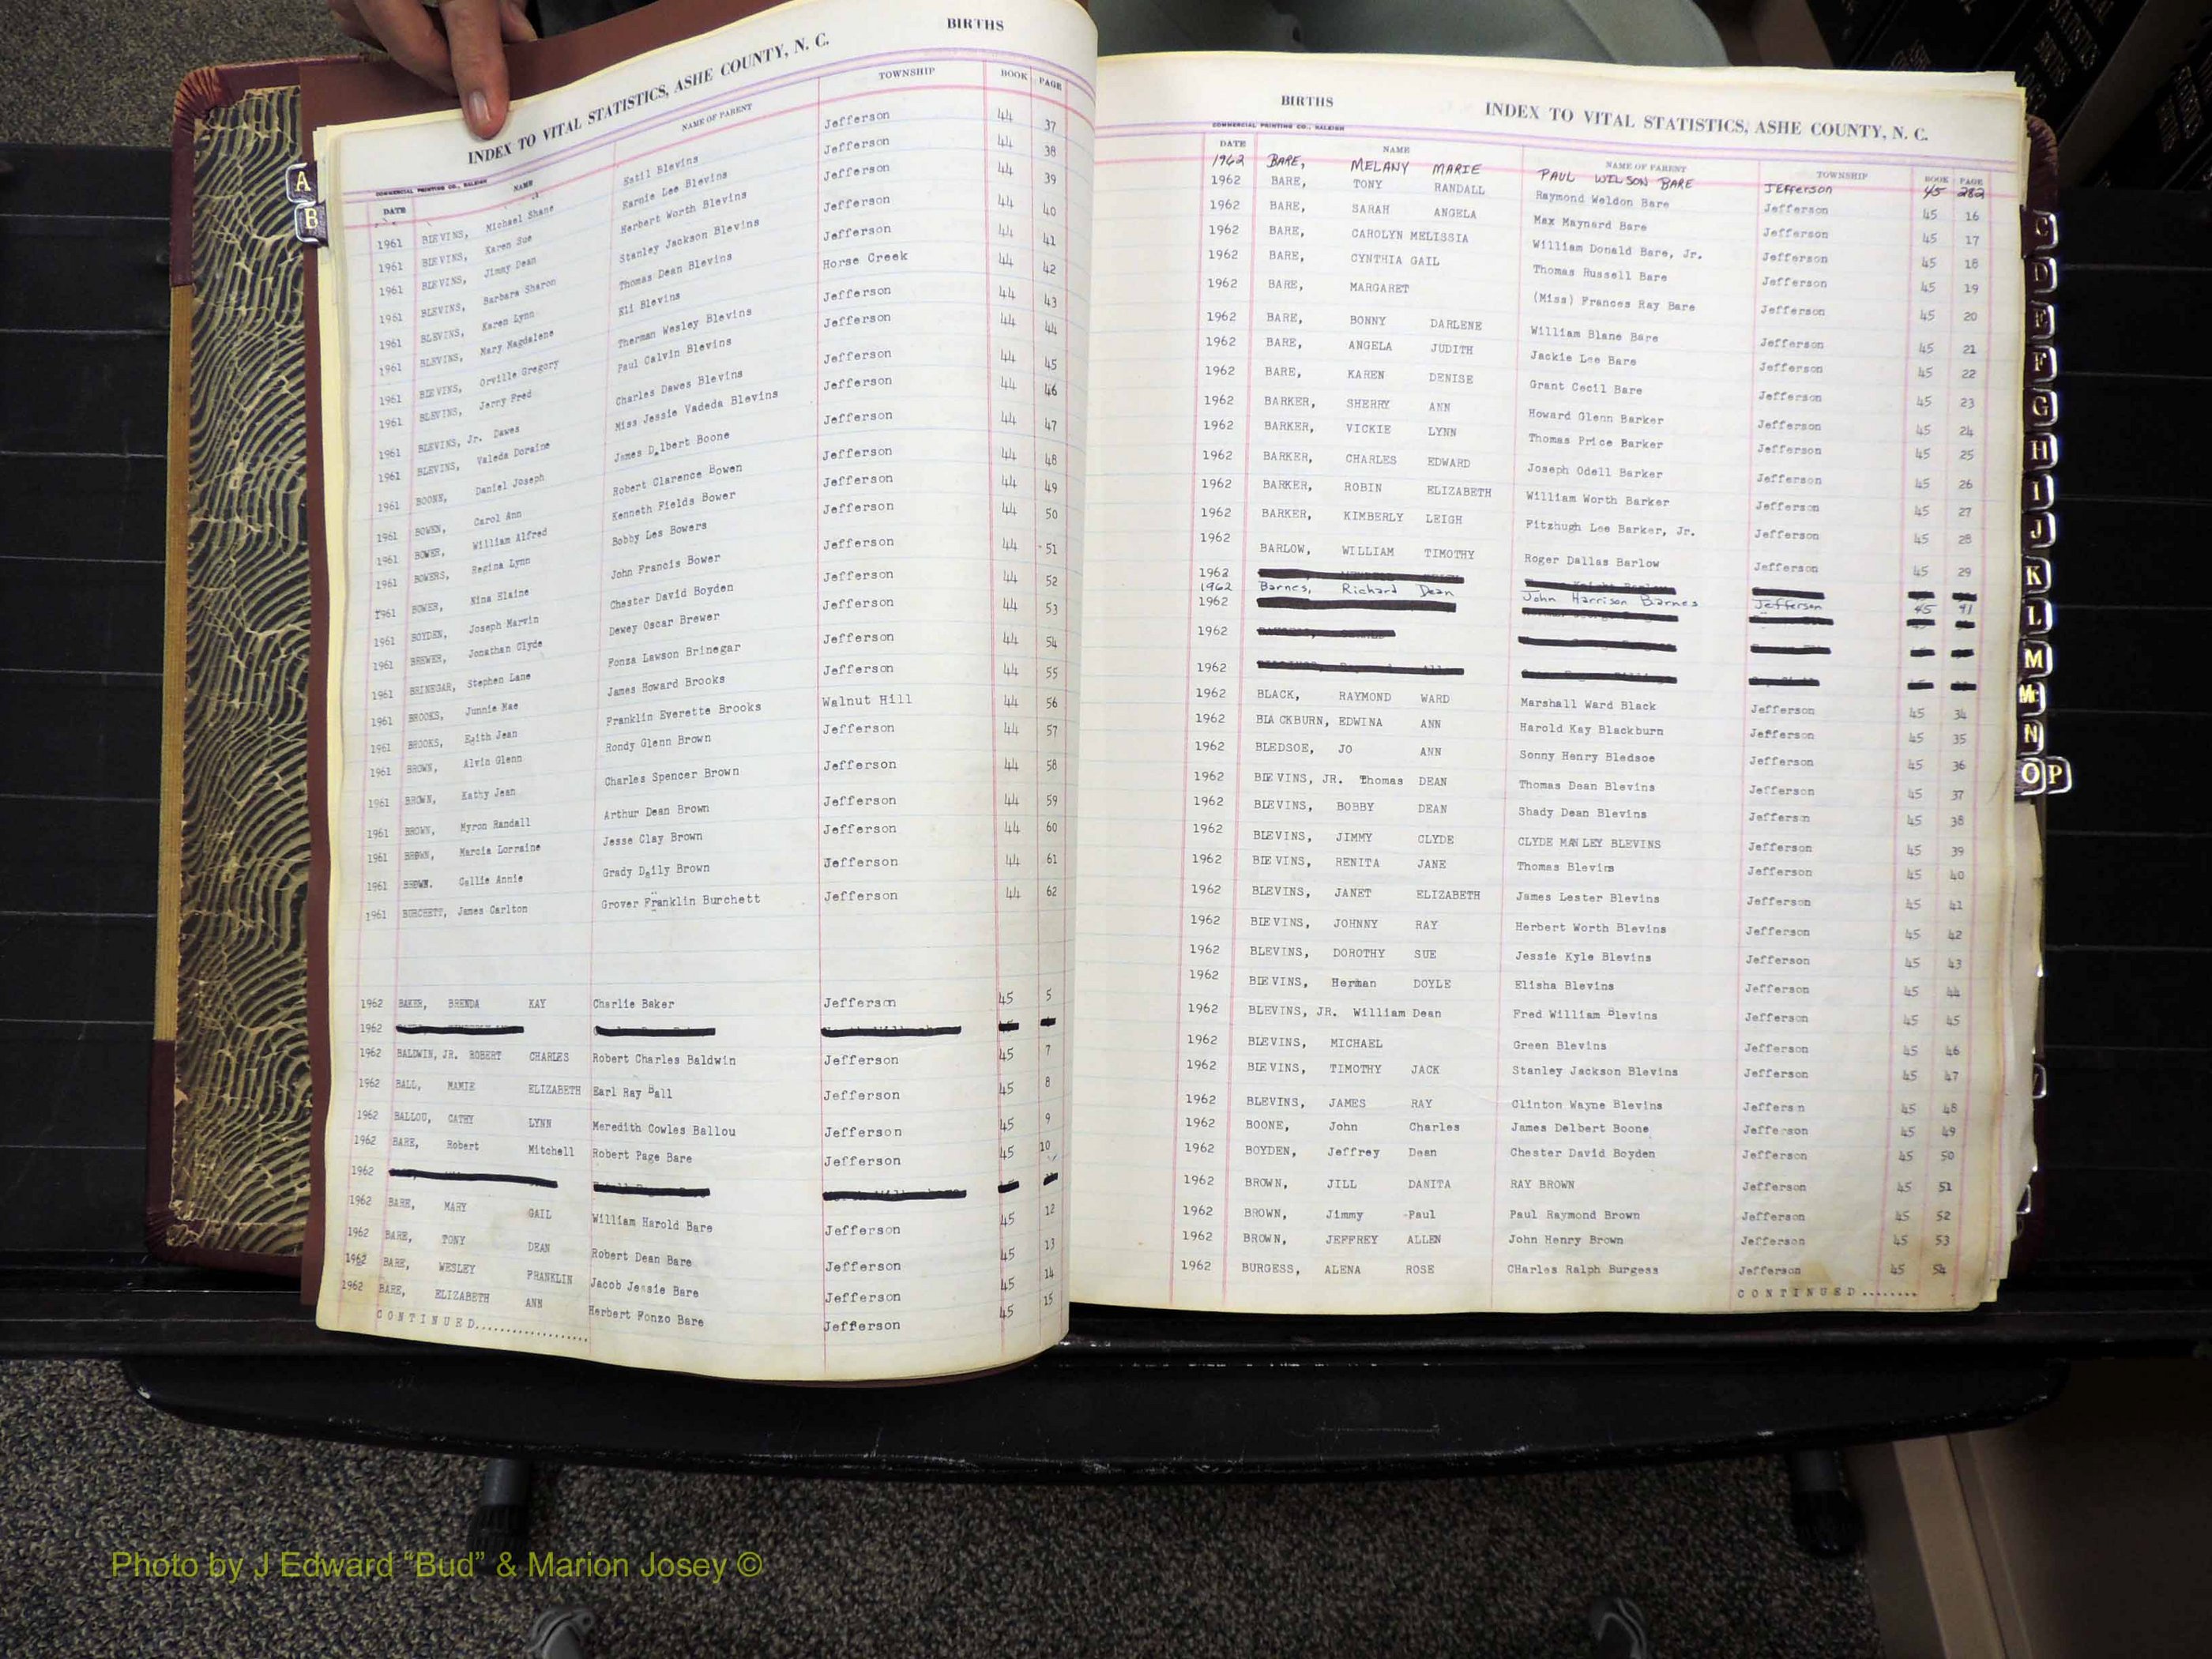 BIRTHS
INDEX TO VITAL STATISTICS, ASHE COUNTY, N. C.
COMMERCIAL PRINTING CO., RALEIGH
DATE NAME NAME OF PARENT TOWNSHIP BOOK PAGE
1961 BLEVINS, Michael Shane Estil Blevins Jefferson 44 37
1961 BLEVINS, Karen Sue Earnie Lee Blevins Jefferson 44 38
1961 BLEVINS, Jimmy Dean Herbert Worth Blevins Jefferson 44 39
1961 BLEVINS, Barbara Sharon Stanley Jackson Blevins Jefferson 44 40
1961 BLEVINS, Karen Lynn Thomas Dean Blevins Jefferson 44 41
1961 BLEVINS, Mary Magdalene Eli Blevins Horse Creek 44 42
1961 BLEVINS, Orville Gregory Therman Wesley Blevins Jefferson 44 43
1961 BLEVINS, Jerry Fred Paul Calvin Blevins Jefferson 44 44
1961 BLEVINS, Jr. Dawes Charles Dawes Blevins Jefferson 44 45
1961 BLEVINS, Valeda Doraine Miss Jessie Vadeda Blevins Jefferson 44 46
1961 BOONE, Daniel Joseph James Delbert Boone Jefferson 44 47
1961 BOWEN, Carol Ann Robert Clarence Bowen Jefferson 44 48
1961 BOWER, William Alfred Kenneth Fields Bower Jefferson 44 49
1961 BOWERS, Regina Lynn Bobby Les Bowers Jefferson 44 50
1961 BOWER, Nina Elaine John Francis Bower Jefferson 44 51
1961 BOYDEN, Joseph Marvin Chester David Boyden Jefferson 44 52
1961 BREWER, Jonathan Clyde Dewey Oscar Brewer Jefferson 44 53
1961 BRINEGAR, Stephen Lane Fonza Lawson Brinegar Jefferson 44 54
1961 BROOKS, Junnie Mae James Howard Brooks Jefferson 44 55
1961 BROOKS, Edith Jean Franklin Everette Brooks Walnut Hill 44 56
1961 BROWN, Alvin Glenn Rondy Glenn Brown Jefferson 44 57
1961 BROWN, Kathy Jean Charles Spencer Brown Jefferson 44 58
1961 BROWN, Myron Randall Arthur Dean Brown Jefferson 44 59
1961 BROWN, Marcia Lorraine Jesse Clay Brown Jefferson 44 60
1961 BROWN, Callie Annie Grady Daily Brown Jefferson 44 61
1961 BURCHETT, James Carlton Grover Franklin Burchett Jefferson 44 62
1962 BAKER, BRENDA KAY Charlie Baker Jefferson 45 5
1962
1962 BALDWIN, JR. ROBERT CHARLES Robert Charles Baldwin Jefferson 45 7
1962 BALL, MAMIE ELIZABETH Earl Ray Ball Jefferson 45 8
1962 BALLOU, CATHY LYNN Meredith Cowles Ballou Jefferson 45 9
1962 BARE, Robert Mitchell Robert Page Bare Jefferson 45 10
1962
1962 BARE, MARY GAIL William Harold Bare Jefferson 45 12
1962 BARE, TONY DEAN Robert Dean Bare Jefferson 45 13
1962 BARE, WESLEY FRANKLIN Jacob Jessie Bare Jefferson 45 14
1962 BARE, ELIZABETH ANN Herbert Fonzo Bare Jefferson 45 15
CONTINUED...................
BIRTHS
INDEX TO VITAL STATISTICS, ASHE COUNTY, N. C.
COMMERCIAL PRINTING CO., RALEIGH
DATE NAME NAME OF PARENT TOWNSHIP BOOK PAGE
1962 BARE, MELANY MARIE PAUL WILSON BARE Jefferson 45 282
1962 BARE, TONY RANDALL Raymond Weldon Bare Jefferson 45 16
1962 BARE, SARAH ANGELA Max Maynard Bare Jefferson 45 17
1962 BARE, CAROLYN MELISSIA William Donald Bare, Jr. Jefferson 45 18
1962 BARE, CYNTHIA GAIL Thomas Russell Bare Jefferson 45 19
1962 BARE, MARGARET (Miss) Frances Ray Bare Jefferson 45 20
1962 BARE, BONNY DARLENE William Blane Bare Jefferson 45 21
1962 BARE, ANGELA JUDITH Jackie Lee Bare Jefferson 45 22
1962 BARE, KAREN DENISE Grant Cecil Bare Jefferson 45 23
1962 BARKER, SHERRY ANN Howard Glenn Barker Jefferson 45 24
1962 BARKER, VICKIE LYNN Thomas Price Barker Jefferson 45 25
1962 BARKER, CHARLES EDWARD Joseph Odell Barker Jefferson 45 26
1962 BARKER, ROBIN ELIZABETH William Worth Barker Jefferson 45 27
1962 BARKER, KIMBERLY LEIGH Fitzhugh Lee Barker, Jr. Jefferson 45 28
1962 BARLOW, WILLIAM TIMOTHY Roger Dallas Barlow Jefferson 45 29
1962
1962 Barnes, Richard Dean John Harrison Barnes Jefferson 45 91
1962
1962
1962
1962 BLACK, RAYMOND WARD Marshall Ward Black Jefferson 45 34
1962 BLACKBURN, EDWINA ANN Harold Kay Blackburn Jefferson 45 35
1962 BLEDSOE, JO ANN Sonny Henry Bledsoe Jefferson 45 36
1962 BLEVINS, JR. Thomas DEAN Thomas Dean Blevins Jefferson 45 37
1962 BLEVINS, BOBBY DEAN Shady Dean Blevins Jefferson 45 38
1962 BLEVINS, JIMMY CLYDE CLYDE MANLEY BLEVINS Jefferson 45 39
1962 BLEVINS, RENITA JANE Thomas Blevins Jefferson 45 40
1962 BLEVINS, JANET ELIZABETH James Lester Blevins Jefferson 45 41
1962 BLEVINS, JOHNNY RAY Herbert Worth Blevins Jefferson 45 42
1962 BLEVINS, DOROTHY SUE Jessie Kyle Blevins Jefferson 45 43
1962 BLEVINS, Herman DOYLE Elisha Blevins Jefferson 45 44
1962 BLEVINS, JR. William Dean Fred William Blevins Jefferson 45 45
1962 BLEVINS, MICHAEL Green Blevins Jefferson 45 46
1962 BLEVINS, TIMOTHY JACK Stanley Jackson Blevins Jefferson 45 47
1962 BLEVINS, JAMES RAY Clinton Wayne Blevins Jefferson 45 48
1962 BOONE, John Charles James Delbert Boone Jefferson 45 49
1962 BOYDEN, Jeffrey Dean Chester David Boyden Jefferson 45 50
1962 BROWN, JILL DANITA RAY BROWN Jefferson 45 51
1962 BROWN, Jimmy Paul Paul Raymond Brown Jefferson 45 52
1962 BROWN, JEFFREY ALLEN John Henry Brown Jefferson 45 53
1962 BURGESS, ALENA ROSE CHarles Ralph Burgess Jefferson 45 54
CONTINUED........
A
B
C
D
E
F
G
H
I
J
K
L
M
Mc
N
O P
Photo by J Edward "Bud" & Marion Josey ©